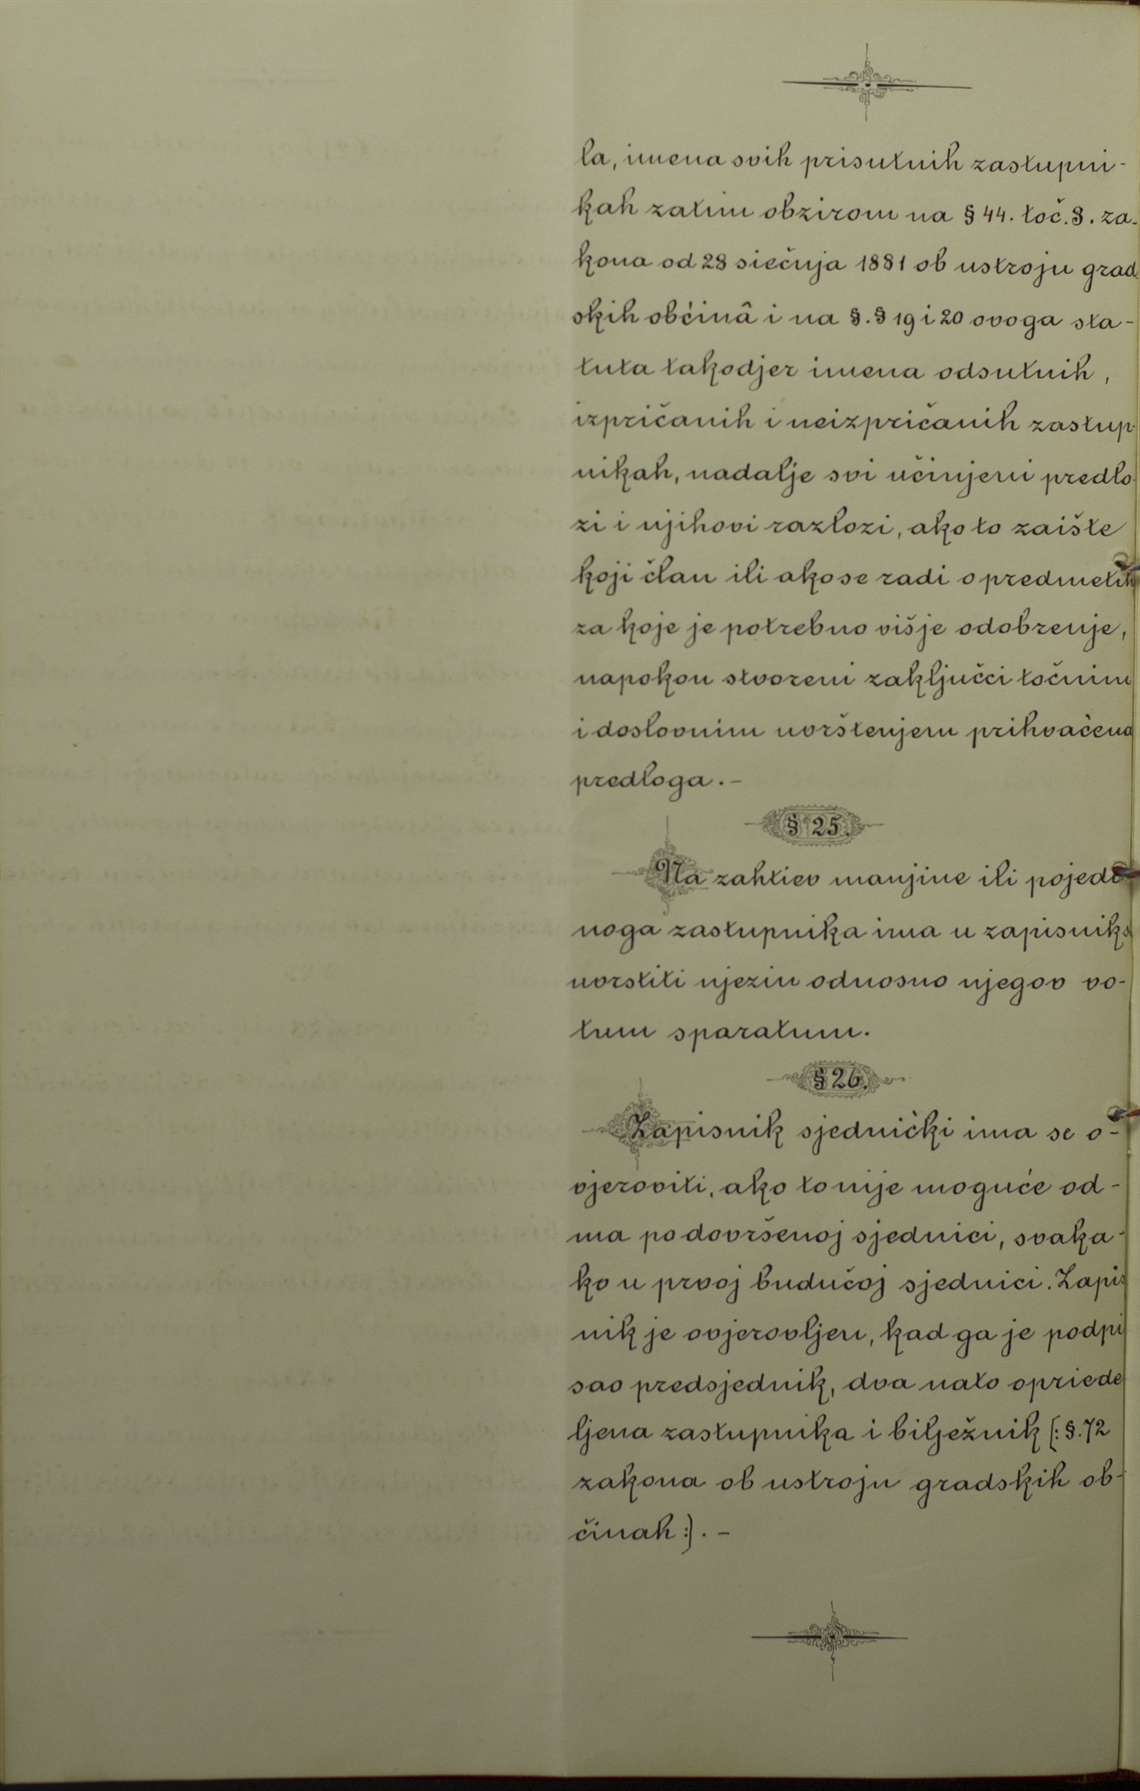 la, imena svih prisutnih zastupni-
kah zatim obzirom na § 44. toč. 8. za-
kona od 28 siečnja 1881 ob ustroju grad
skih obćinâ i na §.§ 19 i 20 ovoga sta-
tuta takodjer imena odsutnih,
izpričanih i neizpričanih zastup-
nikah, nadalje svi učinjeni predlo
zi i njihovi razlozi, ako to zaište
koji član ili ako se radi o predmetih
za koje je potrebno višje odobrenje,
napokon stvoreni zaključci točnim
i doslovnim uvrštenjem prihvaćena
predloga. -
§ 25.
Na zahtiev manjine ili pojedi
noga zastupnika ima u zapisnik
uvrstiti njezin odnosno njegov vo-
tum sparatum.
§ 26.
Zapisnik sjednički ima se o-
vjeroviti, ako to nije moguće od-
ma po dovršenoj sjednici, svaka-
ko u prvoj budućoj sjednici. Zapis
nik je ovjerovljen, kad ga je podpi
sao predsjednik, dva nato opriede
ljena zastupnika i bilježnik (: §. 72
zakona ob ustroju gradskih ob-
činah :). -